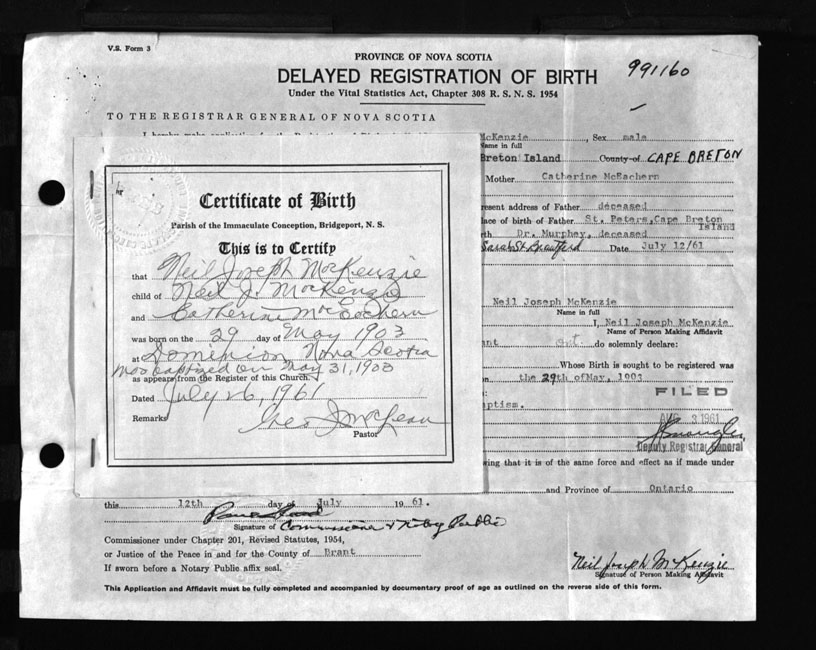 V.S. Form 3
PROVINCE OF NOVA SCOTIA
DELAYED REGISTRATION OF BIRTH
991160
Under the Vital Statistics Act, Chapter 308 R. S. N. S. 1954
TO THE REGISTRAR GENERAL OF NOVA SCOTIA
McKenzie, Sex male
Name in full
Breton Island County of CAPE BRETON
Mother Catherine McEachern
present address of Father deceased
place of birth of Father St. Peters, Cape Breton Island
Dr. Murphey, deceased
Date July 12/61
Neil Joseph McKenzie
Name in full
I, Neil Joseph McKenzie
Name of Person Making Affidavit
Ont. do solemnly declare:
Whose Birth is sought to be registered was
the 29th of May, 1903
FILED
AUG 3 1961
Deputy Registrar General
that it is of the same force and effect as if made under
and Province of Ontario
Certificate of Birth
Parish of the Immaculate Conception, Bridgeport, N. S.
This is to Certify
that Neil Joseph MacKenzie
child of Neil J. MacKenzie
and Catherine MacEachern
was born on the 29 day of May 1903
at Dominion Nova Scotia
was baptized on May 31, 1903
as appears from the Register of this Church.
Dated July 26, 1961
Remarks
Pastor
this 12th day of July 1961.
Signature of Commissioner & Notary Public
Commissioner under Chapter 201, Revised Statutes, 1954,
or Justice of the Peace in and for the County of Brant
If sworn before a Notary Public affix seal.
Neil Joseph McKenzie
Signature of Person Making Affidavit
This Application and Affidavit must be fully completed and accompanied by documentary proof of age as outlined on the reverse side of this form.